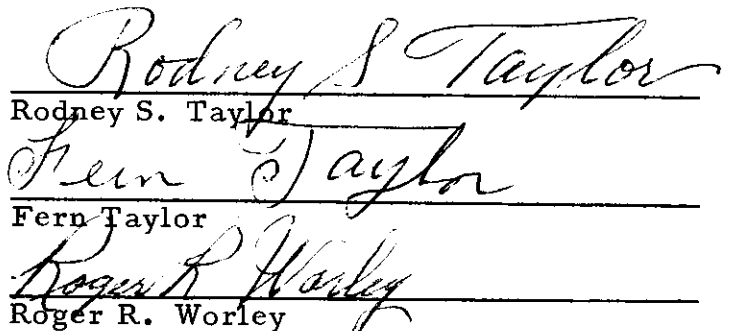 Rodney S Taylor
Rodney S. Taylor
Fern Taylor
Fern Taylor
Roger R Worley
Roger R. Worley